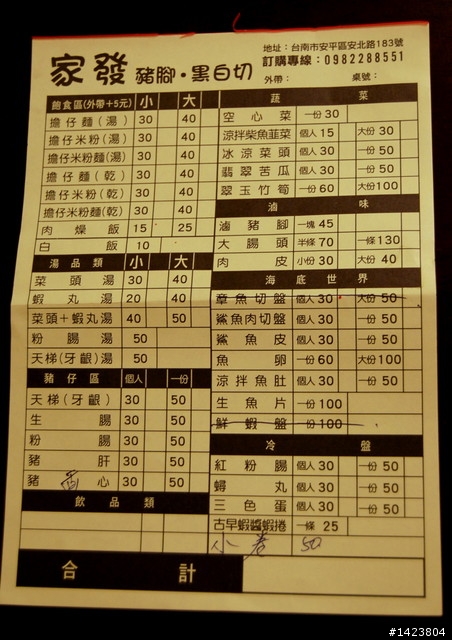 家發 豬腳・黑白切
地址：台南市安平區安北路183號
訂購專線：0982288551
外帶： 桌號：
飽食區(外帶+5元) 小 大
擔仔麵(湯) 30 40
擔仔米粉(湯) 30 40
擔仔米粉麵(湯) 30 40
擔仔麵(乾) 30 40
擔仔米粉(乾) 30 40
擔仔米粉麵(乾) 30 40
肉燥飯 15 25
白飯 10
湯品類 小 大
菜頭湯 30 40
蝦丸湯 20 40
菜頭+蝦丸湯 40 50
粉腸湯 50
天梯(牙齦)湯 50
豬仔區 個人 一份
天梯(牙齦) 30 50
生腸 30 50
粉腸 30 50
豬肝 30 50
豬心 30 50
飲品類
蔬菜
空心菜 一份30
涼拌柴魚韮菜 個人15 大份30
冰涼菜頭 個人30 一份50
翡翠苦瓜 個人30 一份50
翠玉竹筍 一份60 大份100
滷味
滷豬腳 一塊45
大腸頭 半條70 一條130
肉皮 小份30 大份40
海底世界
章魚切盤 個人30 大份50
鯊魚肉切盤 個人30 一份50
鯊魚皮 個人30 一份50
魚卵 一份60 大份100
涼拌魚肚 個人30 一份50
生魚片 一份100
鮮蝦盤 一份100
冷盤
紅粉腸 個人30 一份50
蟳丸 個人30 一份50
三色蛋 個人30 一份50
古早蝦醬蝦捲 一條25
小卷 50
合計
#1423804